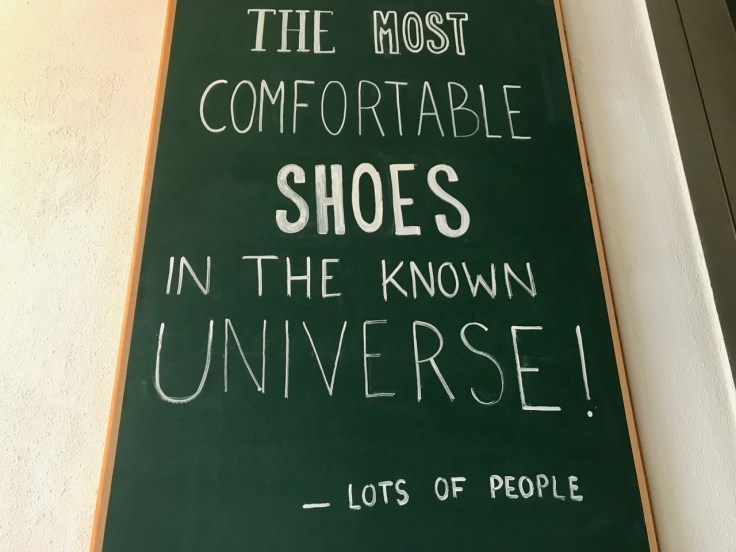 THE MOST
COMFORTABLE
SHOES
IN THE KNOWN
UNIVERSE!
— LOTS OF PEOPLE